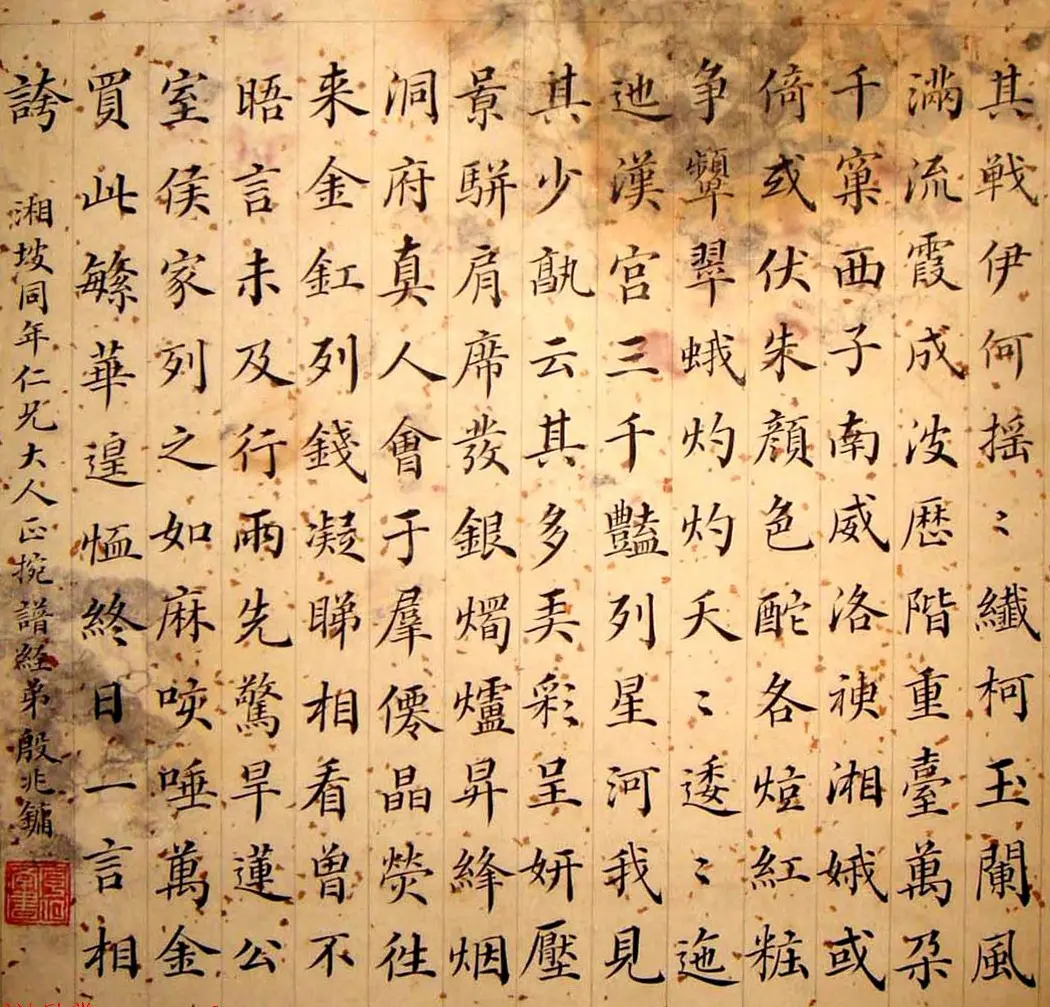 其戦伊何摇〻纖柯玉闌風
滿流霞成波歴階重臺萬朶
千窠西子南威洛神湘娥或
倚或伏朱顔色酡各炫紅粧
争顰翠蛾灼灼夭〻逶〻迤
迆漢宮三千豔列星河我見
其少孰云其多弄彩呈妍壓
景駢肩席發銀燭爐昇絳烟
洞府真人會于羣僊晶熒往
来金釭列錢凝睇相看曾不
晤言未及行雨先驚旱蓮公
室侯家列之如麻咳唾萬金
買此繁華遑恤終日一言相
誇
湘坡同年仁兄大人正捥譜經弟殷兆鏞